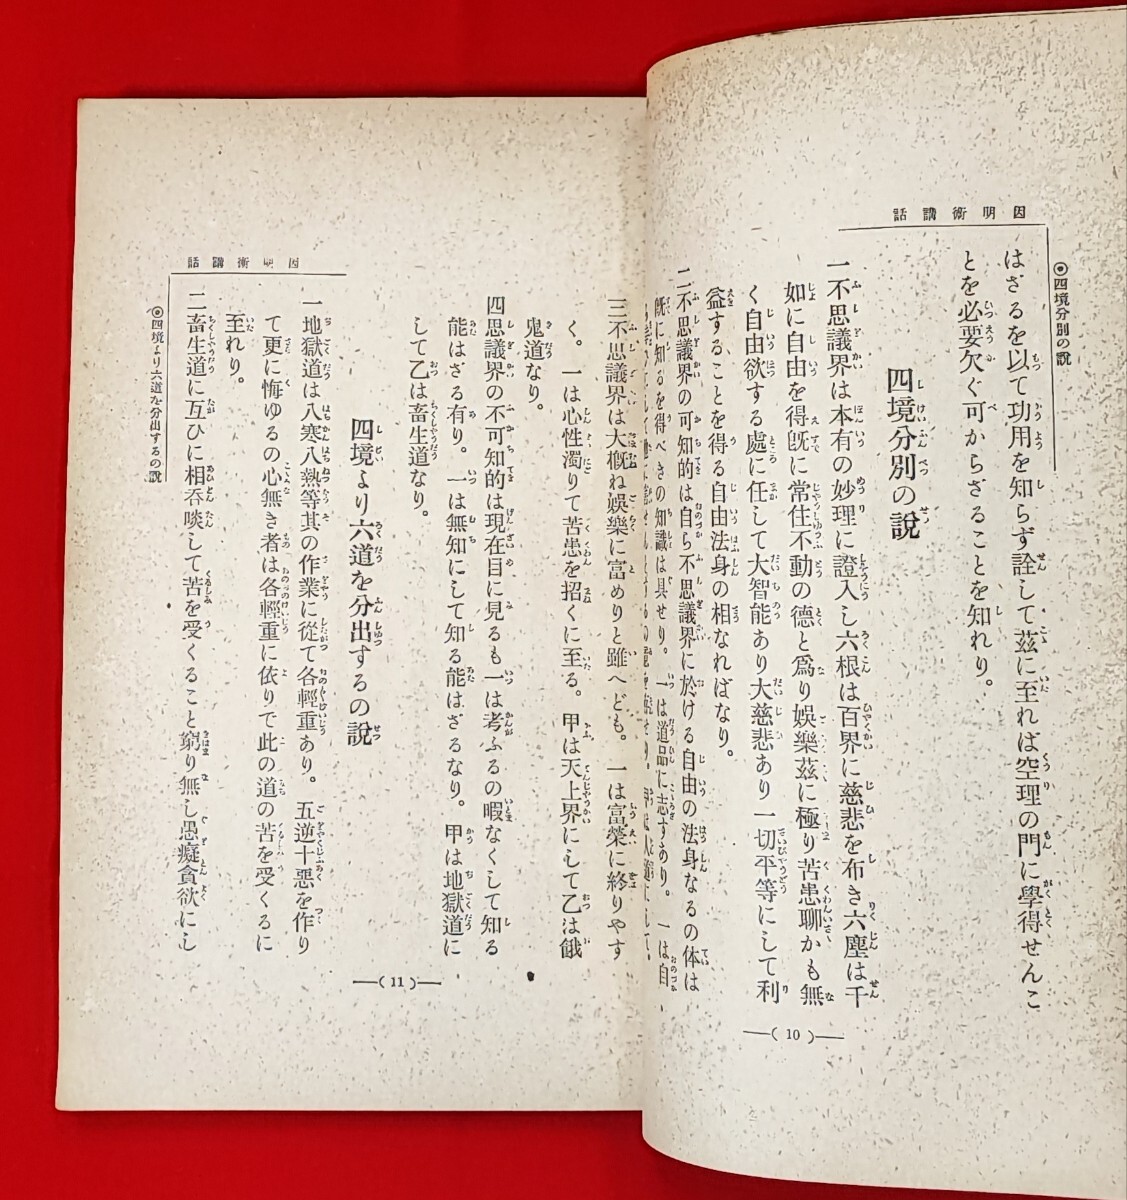 因明術講話
◉四境分別の說
はざるを以て功用を知らず詮して玆に至れば空理の門に學得せんこ
とを必要欠ぐ可からざることを知れり。
四境分別の說
一不思議界は本有の妙理に證入し六根は百界に慈悲を布き六塵は千
如に自由を得旣に常住不動の德と爲り娛樂玆に極り苦患聊かも無
く自由欲する處に任して大智能あり大慈悲あり一切平等にして利
益することを得る自由法身の相なればなり。
二不思議界の可知的は自ら不思議界に於ける自由の法身なるの体は
旣に知るを得べきの知識は具せり。一は道品に志すあり。一は自
(10)
因明術講話
◉四境より六道を分出するの說
三不思議界は大槪ね娛樂に富めりと雖へども。一は富榮に終りやす
く。一は心性濁りて苦患を招くに至る。甲は天上界にして乙は餓
鬼道なり。
四思議界の不可知的は現在目に見るも一は考ふるの暇なくして知る
能はざる有り。一は無知にして知る能はざるなり。甲は地獄道に
して乙は畜生道なり。
四境より六道を分出するの說
一地獄道は八寒八熱等其の作業に從て各輕重あり。五逆十惡を作り
て更に悔ゆるの心無き者は各輕重に依りで此の道の苦を受くるに
至れり。
二畜生道に互ひに相呑啖して苦を受くること窮り無し愚癡貪欲にし
(11)